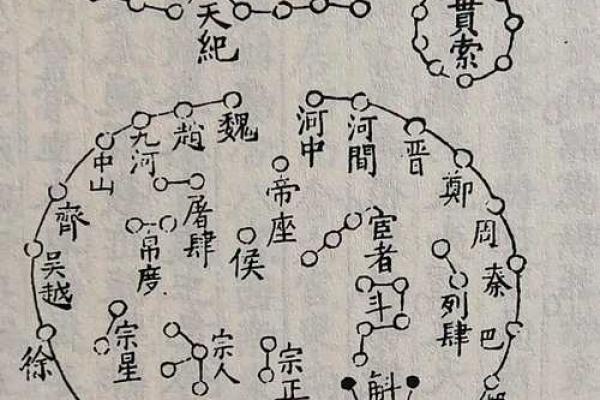 天紀
貫索
魏
趙
九河
中山
齊
吳越
徐
河中
河間
晋
鄭
周
秦
巴
帝座
侯
宦者
斗
列肆
屠肆
帛度
宗星
宗人
宗正
斛